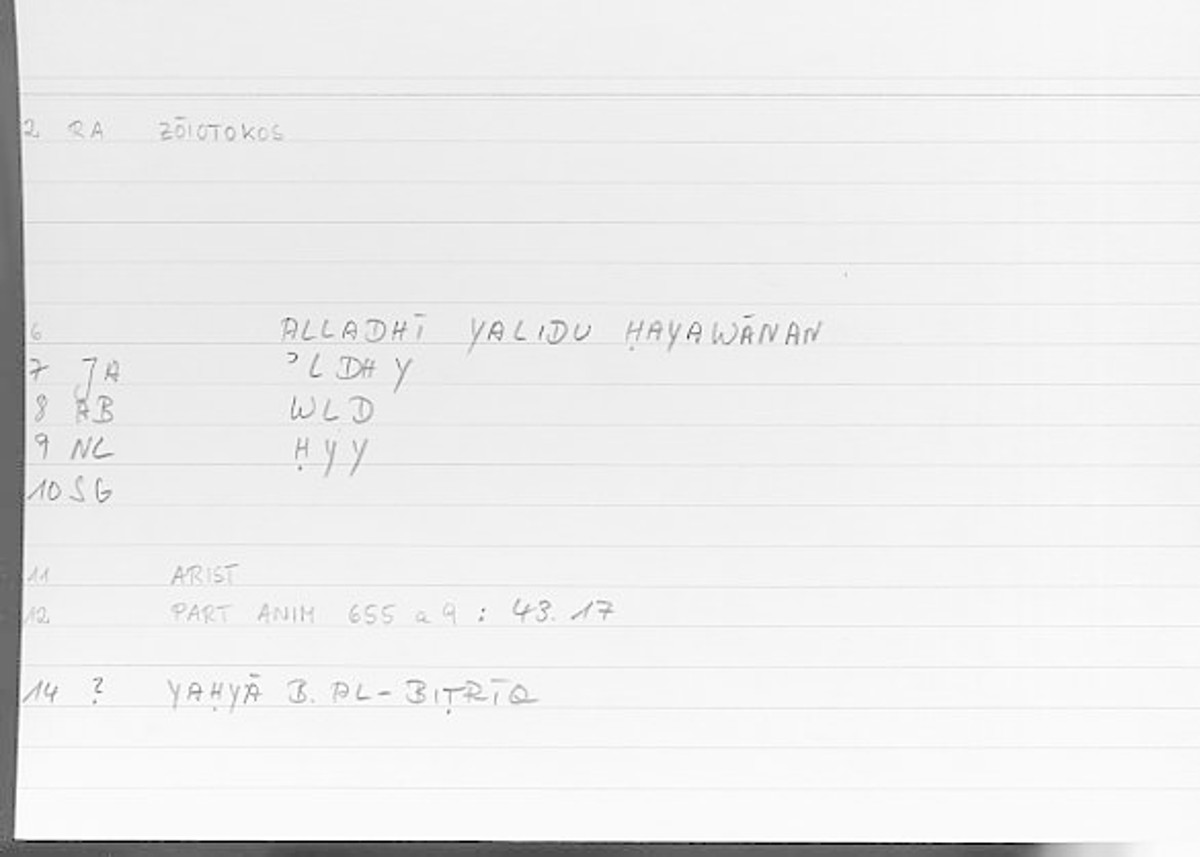 2 RA ZŌIOTOKOS
6 ALLADHĪ YALIDU ḤAYAWĀNAN
7 JA ʾLDHY
8 AB WLD
9 NC ḤYY
10 SG
11 ARIST
12 PART ANIM 655 a 9 : 43.17
14 ? YAḤYĀ B. AL-BIṬRĪQ